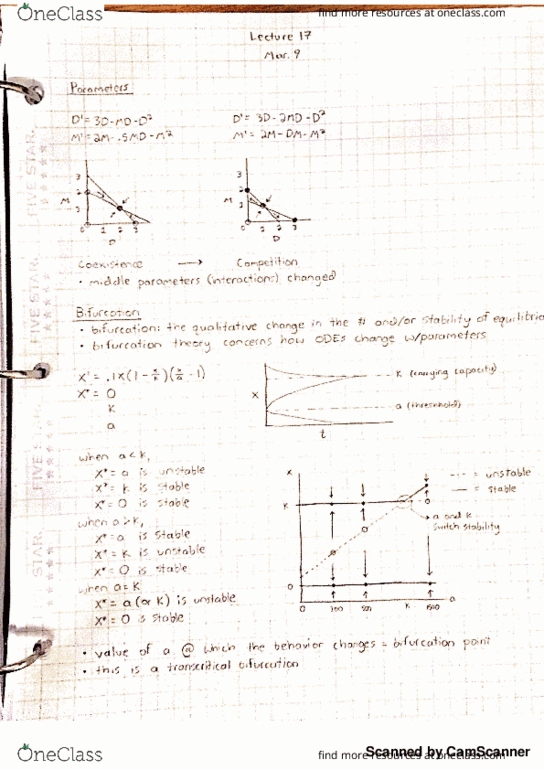 OneClass
find more resources at oneclass.com
Lecture 17
Mar. 9
Parameters
D' = 3D-MD-D²
D' = 3D-2MD-D²
M' = 2M-.5MD-M²
M' = 2M-DM-M²
3
2
1
M
0 1 2 3
D
3
2
1
M
0 1 2 3
D
Coexistence → Competition
• middle parameters (interactions) changed
Bifurcation
• bifurcation: the qualitative change in the # and/or stability of equilibria
• bifurcation theory concerns how ODEs change w/parameters
X' = .1X(1-X/K)(X/a-1)
X* = 0
K
a
X
K (carrying capacity)
a (threshold)
t
when a<K,
X* = a is unstable
X* = K is stable
X* = 0 is stable
when a>K,
X* = a is stable
X* = K is unstable
X* = 0 is stable
when a=K
X* = a (or K) is unstable
X* = 0 is stable
X
K
0
--- = unstable
— = stable
a and K
switch stability
0
K
a
• value of a @ which the behavior changes = bifurcation point
• this is a transcritical bifurcation
FIVE STAR.
FIVE STAR.
OneClass
find more resources at oneclass.com
Scanned by CamScanner